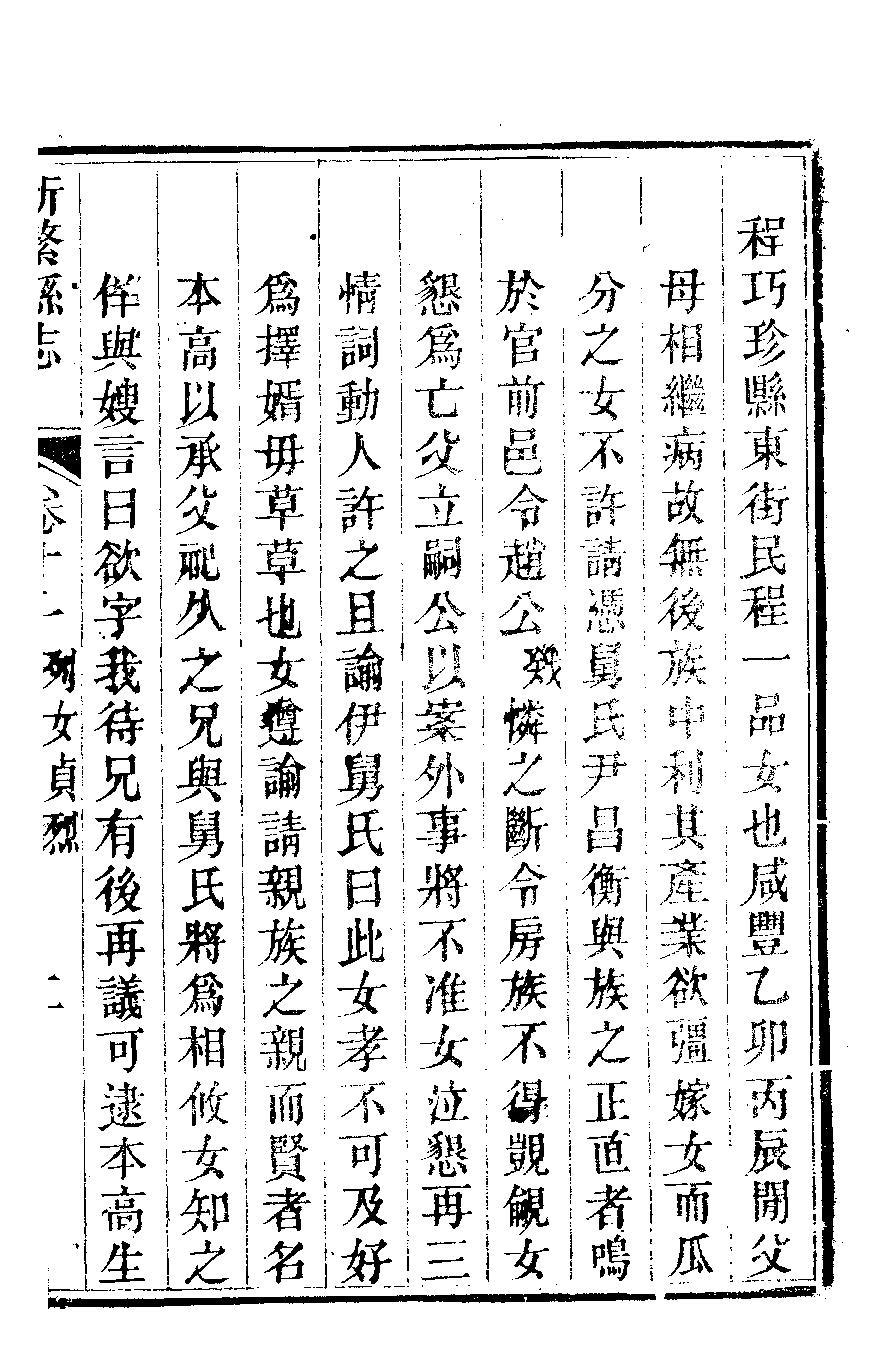 程巧珍縣東街民程一品女也咸豐乙卯丙辰閒父
母相繼病故無後族中利其產業欲彊嫁女而瓜
分之女不許請憑舅氏尹昌衡與族之正直者鳴
於官前邑令趙公憐之斷令房族不得覬覦女
懇爲亡父立嗣公以案外事將不准女泣懇再三
情詞動人許之且諭伊舅氏曰此女孝不可及好
爲擇婿毋草草也女遵諭請親族之親而賢者名
本高以承父祀久之兄與舅氏將爲相攸女知之
佯與嫂言曰欲字我待兄有後再議可逮本高生
新繁縣志 卷十一 列女貞烈 二